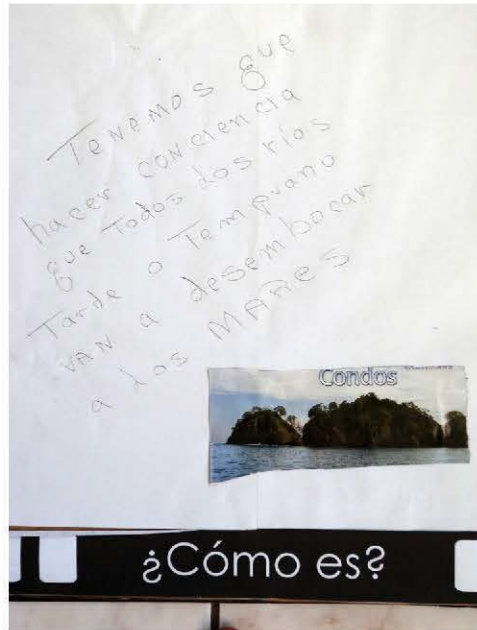 Tenemos que
hacer conciencia
que Todos Los ríos
Tarde o Temprano
VAN a desembocar
a Los MAReS
Condos
¿Cómo es?